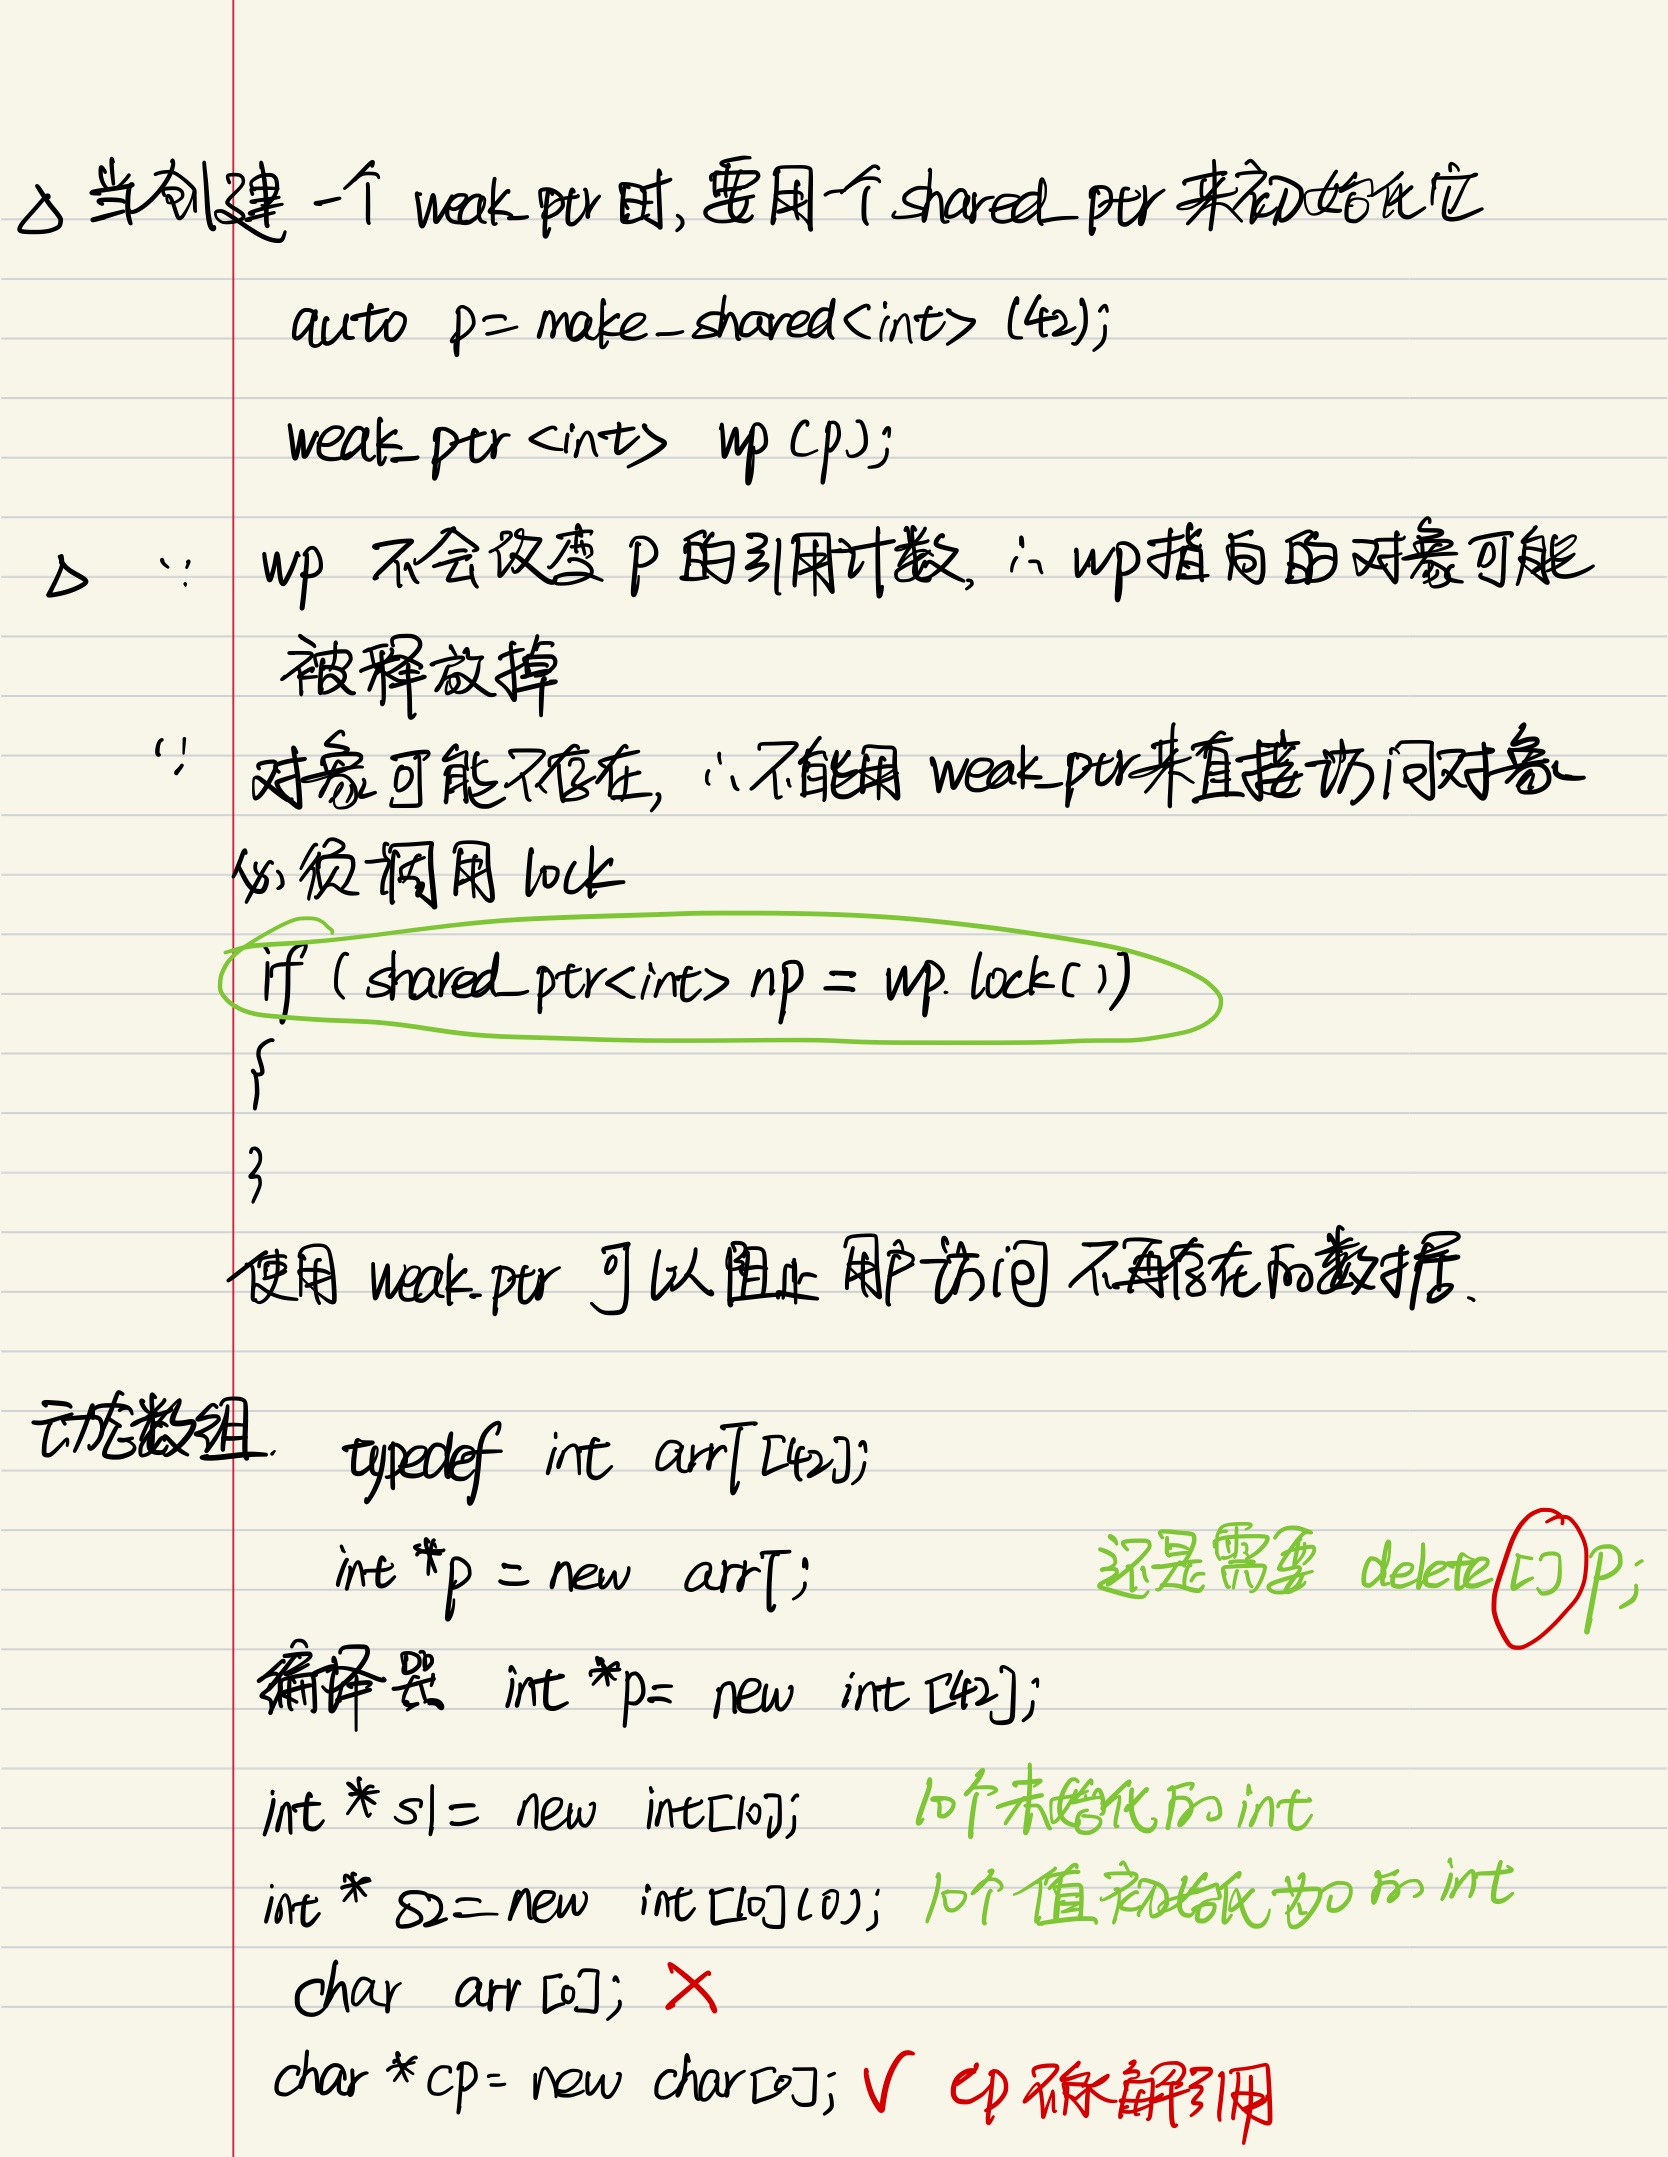 △ 当创建一个 weak_ptr 时, 要用个 shared_ptr 来初始化它
auto p = make_shared<int> (42);
weak_ptr <int> wp (p);
△ ∵ wp 不会改变 p 的引用计数, ∴ wp指向的对象可能
被释放掉
∵ 对象可能不存在, ∴不能用 weak_ptr来直接访问对象
必须调用 lock
if ( shared_ptr<int> np = wp. lock( ))
{
}
使用 weak_ptr 可以阻止用户访问不再存在的数据.
动态数组. typedef int arrT [42];
int *p = new arrT; 还是需要 delete [] p;
编译器 int *p= new int [42];
int * s1= new int[10]; 10个未始化的 int
int * s2= new int [10] (0); 10个值初始化为0的 int
char arr [0]; ×
char *cp= new char[0]; √ cp 不能解引用